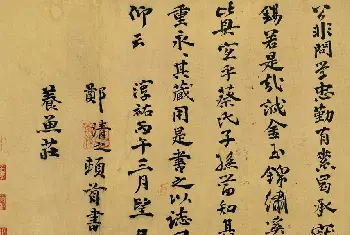 公非問学忠勤有素曷承
錫若是哉誠金玉錦繡
此真宝乎蔡氏子孫当知其
重永其蔵用是書之以誌
仰云淳祐丙午三月望日
鄭清之頓首書
養魚荘